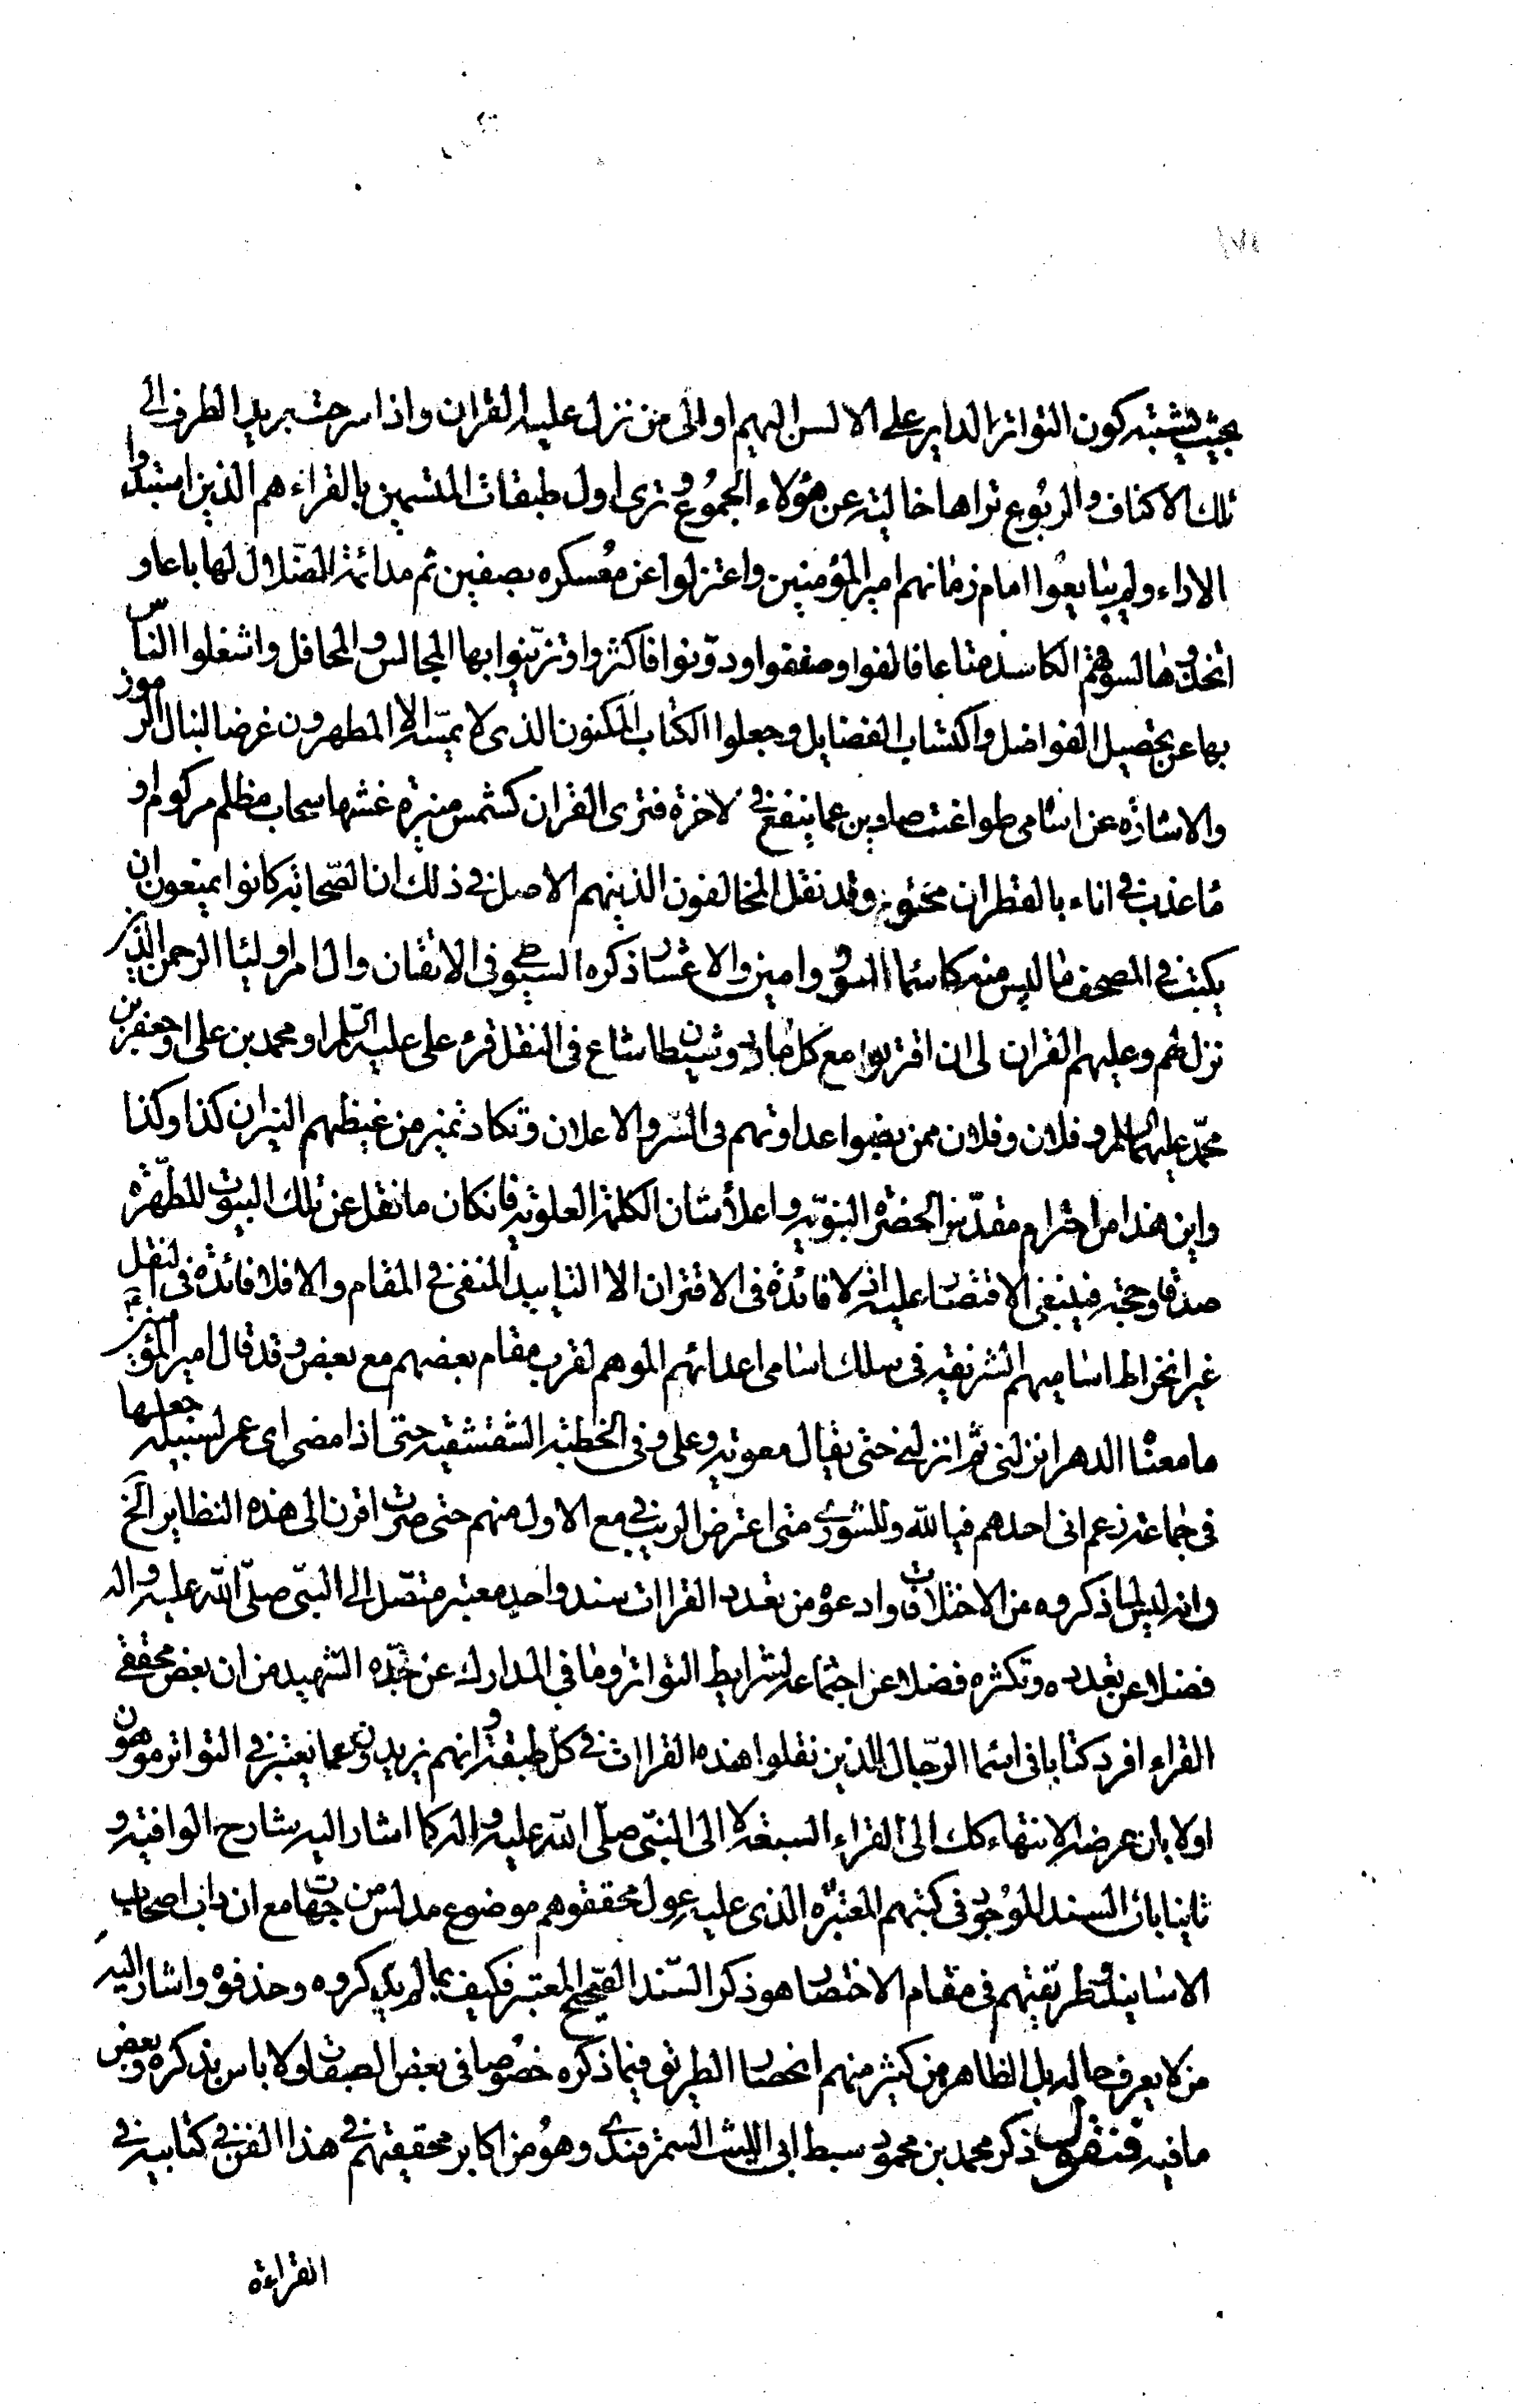 بحيث يشتبه كون التواتر الداير على الالسن اليهم او الى من نزل عليه القران واذا سرحت بريد الطرف الى
تلك الاكناف والربوع تراها خالية عن هؤلاء الجموع وترى اول طبقات المتسمين بالقراء هم الذين استبدوا
الاراء ولم يبايعوا امام زمانهم امير المؤمنين واعتزلوا عن معسكره بصفين ثم مد ائمة الضلال لها باعا و
اتخذوها لسوقهم الكاسد متاعا فالفوا وصفقوا ودونوا فاكثروا وتزينوا بها المجالس والمحافل واشغلوا الناس
بها عن تحصيل الفواضل واكتساب الفضايل وجعلوا الكتاب المكنون الذى لا يمسه الا المطهرون غرضا لنبال الرموز
والاشارة عن اسامى طواغيت صادين عما ينفع فى الاخرة فترى القران كشمس منيرة غشها سحاب مظلم مركوم او
ماء عذب فى اناء بالقطران محتوم وقد نقل المخالفون الذينهم الاصل فى ذلك ان الصحابة كانوا يمنعون ان
يكتب فى المصحف ما ليس منه كاسماء السور وامين والاعشار ذكره السيوطى فى الاتقان وال امر اولياء الرحمن الذين
نزل لهم وعليهم القران الى ان اقترنوا مع كل مارد وشيطان شاع فى النقل قرء على عليه السلام او محمد بن على او جعفر بن
محمد عليهما السلام وفلان وفلان ممن نصبوا عداوتهم فى السر والاعلان وتكاد تميز من غيظهم النيران كذا وكذا
واين هذا من احترام مقدس الحضرة النبوية واعلاء شان الكلمة العلوية فانكان ما نقل عن تلك البيوت المطهرة
صدقا وحجة فينبغى الاقتصار عليه اذ لا فائدة فى الاقتران الا التاييد المنفى فى المقام والا فلا فائدة فى النقل
غير انخراط اساميهم الشريفة فى سلك اسامى اعدائهم الموهم لقرب مقام بعضهم مع بعض وقد قال امير المؤمنين
ما معناه الدهر انزلنى ثم انزلنى حتى يقال معوية وعلى وفى الخطبة الشقشقية حتى اذا مضى اى عمر لسبيله جعلها
فى جماعة زعم انى احدهم فيا لله وللشورى متى اعترض الريب فى مع الاول منهم حتى صرت اقرن الى هذه النظاير الخ
وانه ليس لما ذكروه من الاختلافات وادعوه من تعدد القراات سند واحد معتبر متصل الى النبى صلى الله عليه واله
فضلا عن تعدده وتكثره فضلا عن اجتماعه لشرايط التواتر وما فى المدارك عن جده الشهيد من ان بعض محققى
القراء افرد كتابا فى اسماء الرجال الذين نقلوا هذه القراات فى كل طبقة وانهم يزيدون عما يعتبر فى التواتر موهون
اولا بان غرضه الانتهاء كك الى القراء السبعة لا الى النبى صلى الله عليه واله كما اشار اليه شارح الوافية و
ثانيا بان السند الموجود فى كتبهم المعتبرة الذى عليه عول محققوهم موضوع مدلس من جهات مع ان داب اصحاب
الاسانيد وطريقتهم فى مقام الاختصار هو ذكر السند الصحيح المعتبر فكيف بما لم يذكروه وحذفوه واشار اليه
من لا يعرف حاله بل الظاهر من كثير منهم انحصار الطريق فيما ذكره خصوصا فى بعض الطبقات ولا باس بذكره وبعض
ما فيه فنقول ذكر محمد بن محمود سبط ابى الليث السمرقندى وهو من اكابر محققيهم فى هذا الفن فى كتابيه فى
القراءة